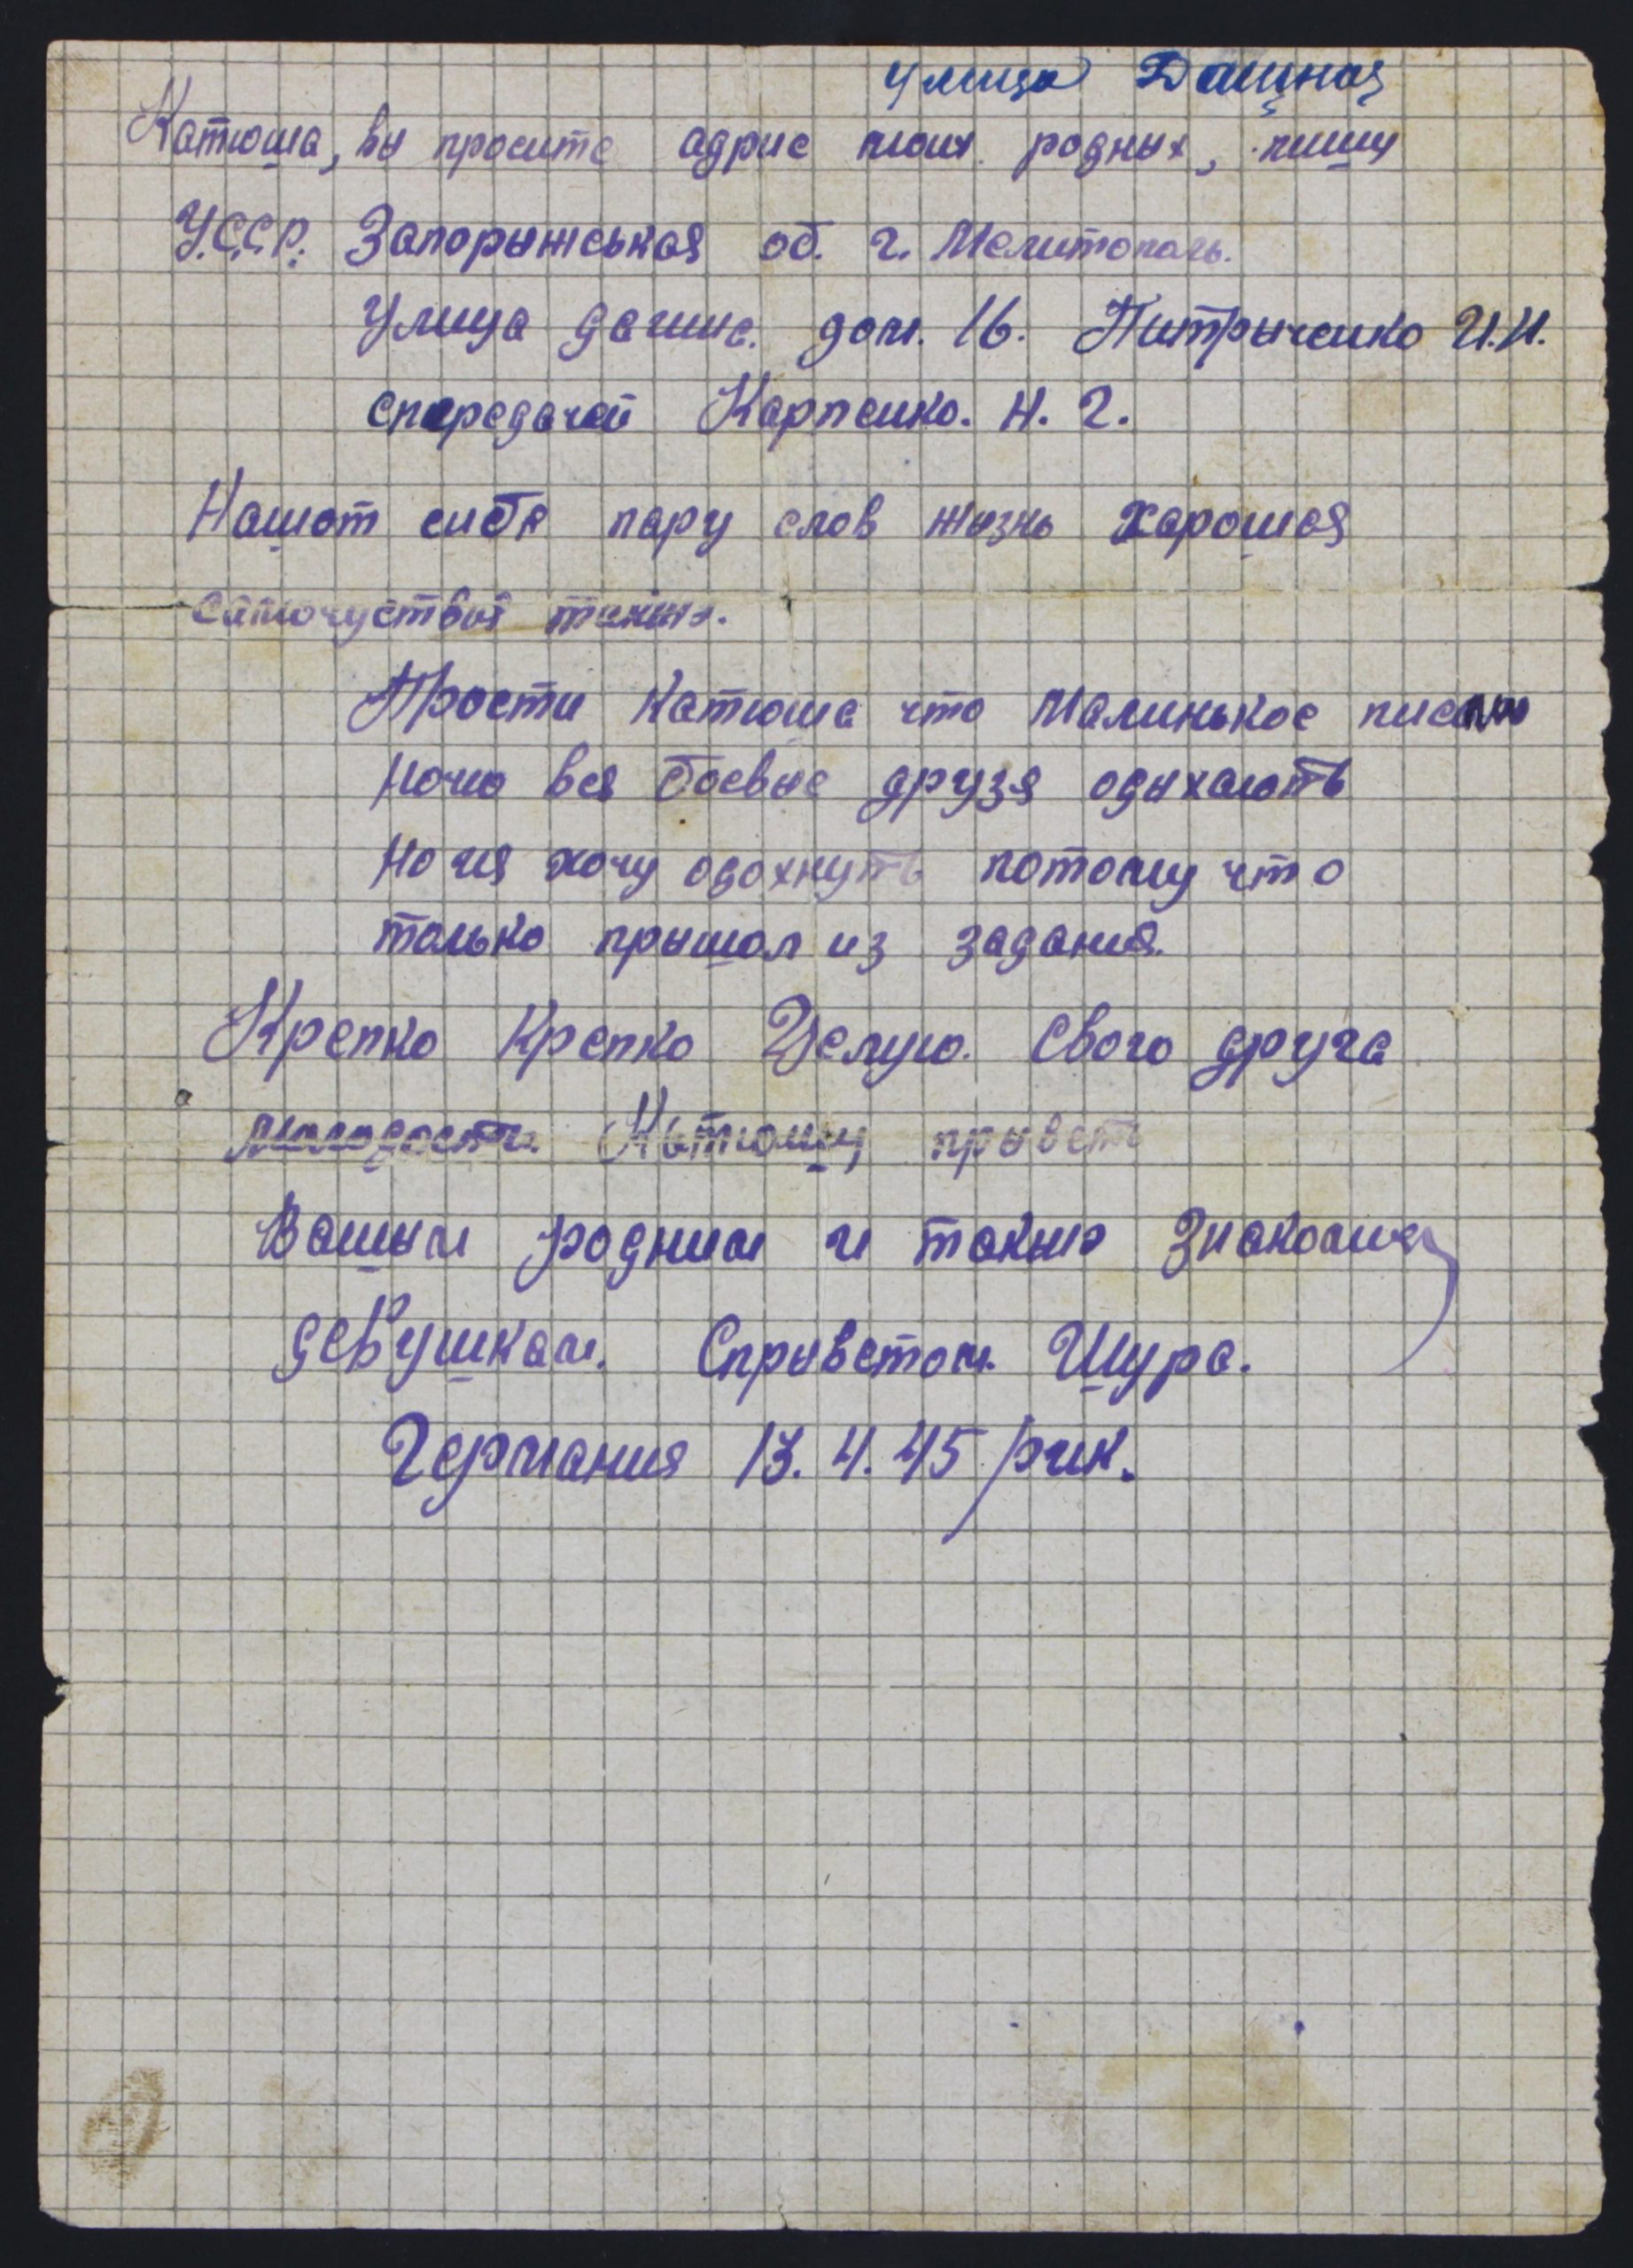 улица Дачная
Катюша, вы просите адрис моих родных, пишу
У.С.С.Р. Запорыжськая об. г. Мелитополь.
Улица дачна. дом. 16. Питрыченко И.И.
спередачей Карпенко. Н. Г.
Нашот сибя пару слов жизнь харошая
самочуствия
Прости Катюша что малинькое писмо
ночю вся боевые друзя одыхають
но ия хочу одохнуть потому что
только прышол из задания.
Крепко Крепко Целую. Свого друга
молодости. Катюшу прывет
Вашым родним и такиэ знакомим
девушкам. Спрыветом Шура.
Германия 13.4.45 рик.